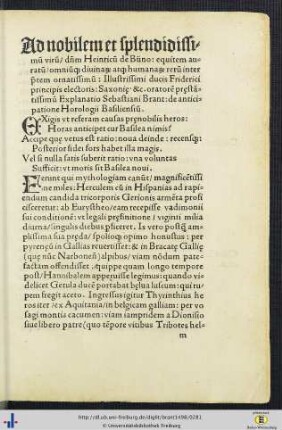 Ad nobilem et splendidissi-
mū virū/ dūm Heinricū de Būno: equitem au-
ratū: omniūq; diuinaꝝ atq; humanaꝝ rerū inter
pretem ornatissimū: Illustrissimi ducis Friderici
principis electoris: Saxonię &c. oratorē pręstā-
tissimū Explanatio Sebastiani Brant: de antici-
patione Horologii Basiliensiū.
EXigis vt referam causas pręnobilis heros:
Horas anticipet cur Basilea nimis?
Accipe quę vetus est ratio: noua deinde: recensq;:
Posterior fidei fors habet illa magis.
Vel si nulla satis fuerit ratio: vna voluntas
Sufficit: vt motis sit Basilea noui.
FErunt qui mythologiam canūt/ magnificētissi
me moles: Herculem cū in Hispanias ad rapi-
endum candida tricorporis Gerionis armēta profi
cisceretur: ab Eurystheo/ eam recepisse vadimonii
sui conditionē: vt legali prefinitione/ viginti milia
diuma/ singulis diebus pliceret. Is vero postq̄ am
plissima sua pręda/ spoliisq; opimo honustus: per
pyrenęū in Gallias reuertisset: & in Bracatę Gallię
(quę nūc Narbonēs) alpibus/ viam nōdum pate-
factam offendisset: quippe quam longo tempore
post/ Hannibalem apperuisse legimus: quando vi
delicet Getula ducē portabat belua luscum: qui ru
pem fregit aceto. Ingressus igitur Thyrinthius he
ros iter/ ex Aquitania/ in belgicam galliam: per vo
sagi montis cacumen: viam iampridem a Dionisio
siue libero patre (quo tēpore vitibus Tribotes hel-
m
http://dl.ub.uni-freiburg.de/diglit/brant1498/0281
© Universitätsbibliothek Freiburg